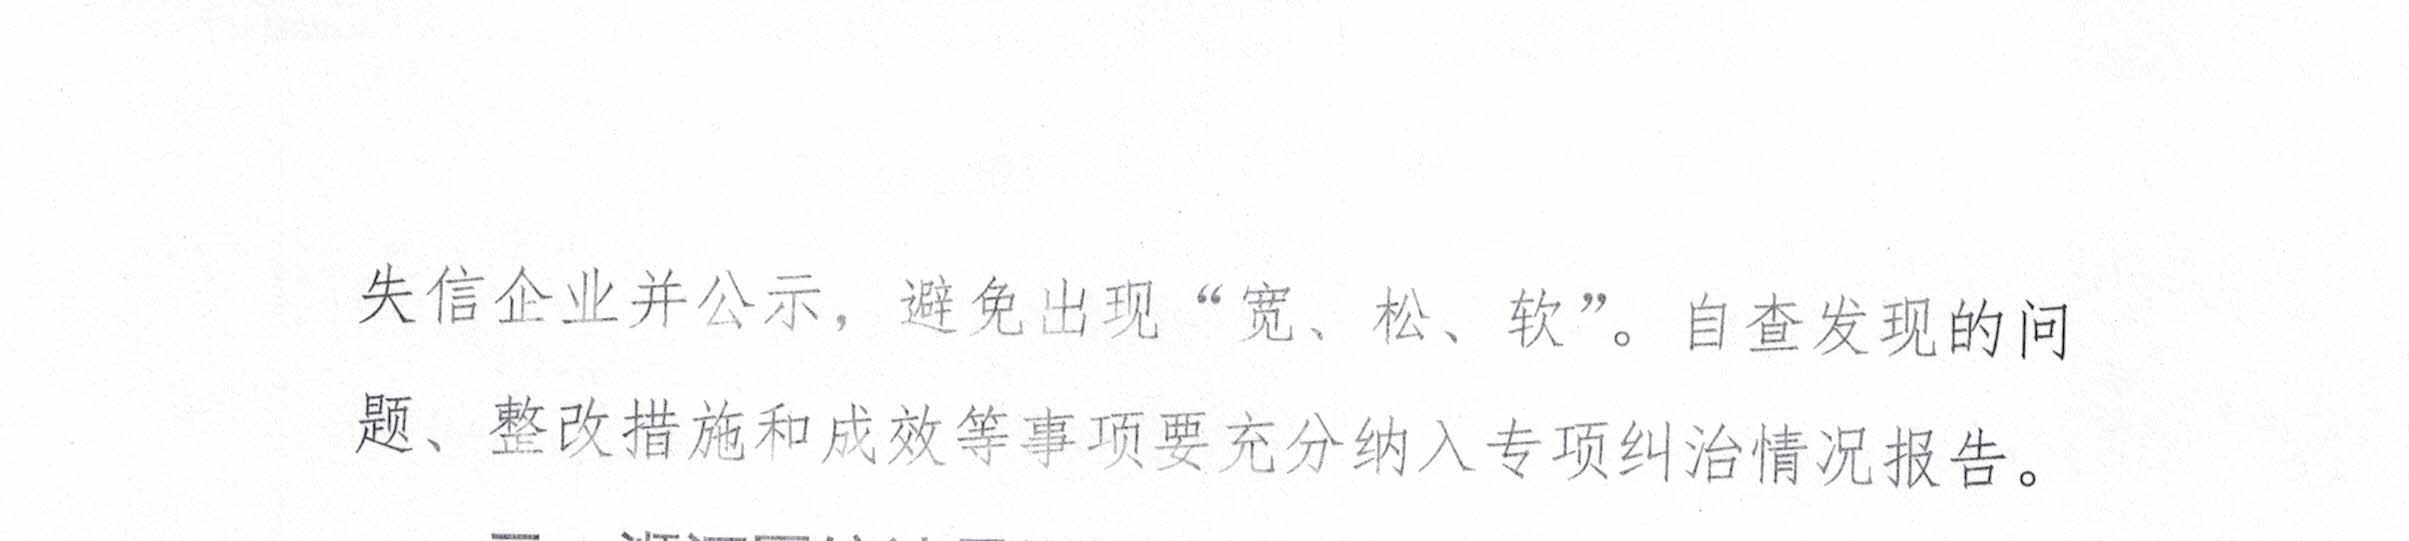 失信企业并公示，避免出现“宽、松、软”。自查发现的问
题、整改措施和成效等事项要充分纳入专项纠治情况报告。